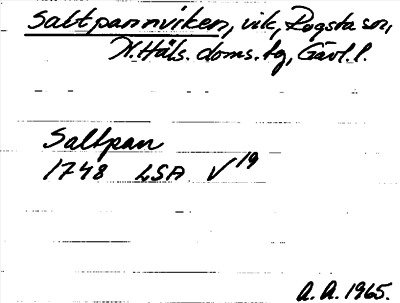 Saltpannviken, vik, Rogsta sn,
N.Häls. doms. tg, Gävl. l.
Saltpan
1748 LSA V 19
A. A. 1965.